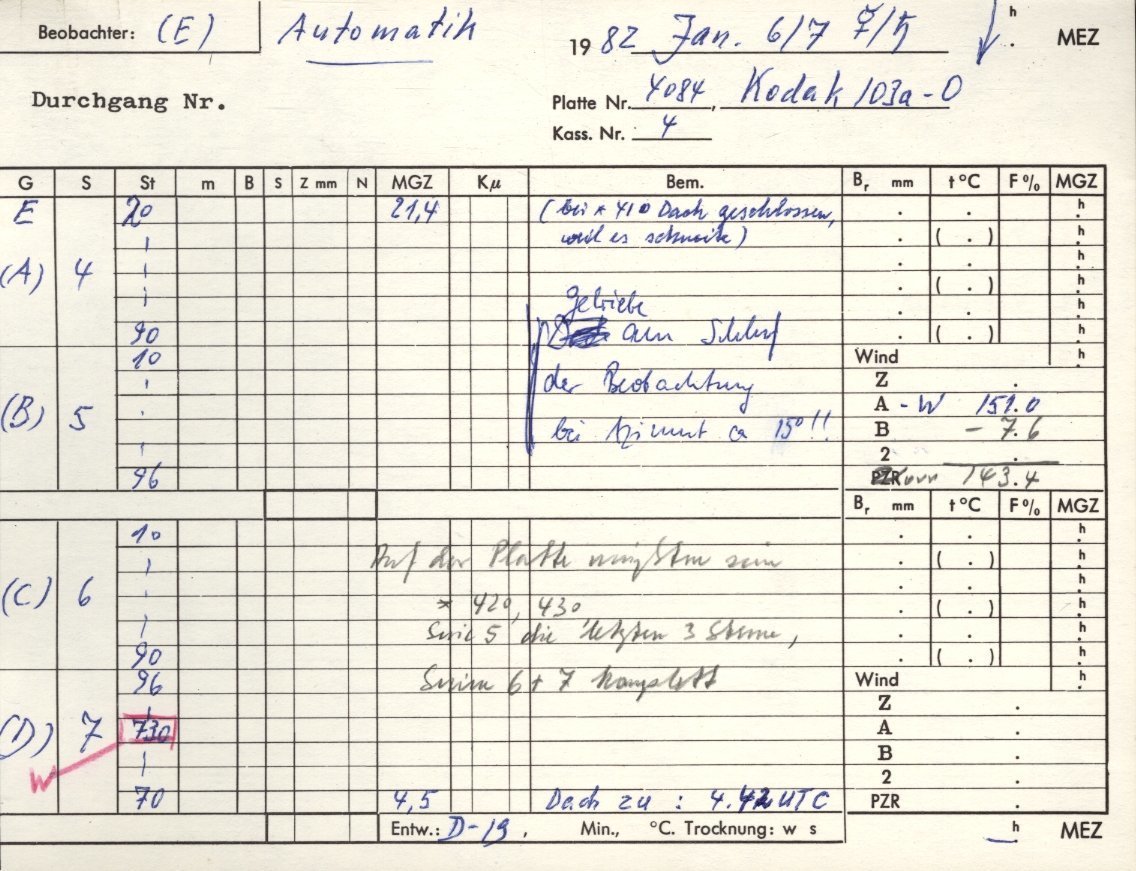 Beobachter: (E) Automatik 1982 Jan. 6/7 ♀/♄ h . MEZ
Durchgang Nr.
Platte Nr. 4084, Kodak 103a-O
Kass. Nr. 4
G S St m B S Z mm N MGZ Kμ Bem. Br mm t °C F % MGZ
E 20 21,4 (bei * 410 Dach geschlossen, . . h
weil es schneite) . ( . ) h
(A) 4 . . h
. ( . ) h
Getriebe . . h
90 am Schluß . ( . )
10 Wind h
der Beobachtung Z .
(B) 5 A - W 151.0
bei Azimut ca 150!! B - 7.6
2 .
96 PZR korr 143.4
Br mm t °C F % MGZ
10 . . h
Auf der Platte müßten sein . ( . ) h
(C) 6 . . h
* 420, 430 . ( . ) h
Serie 5 die letzten 3 Sterne, . . h
90 . ( . ) h
96 Serien 6 + 7 komplett Wind h
Z .
(D) 7 730 A .
B .
W 2 .
70 4,5 Dach zu : 4.42 UTC PZR .
Entw.: D-19. Min., °C. Trocknung: w s h . MEZ